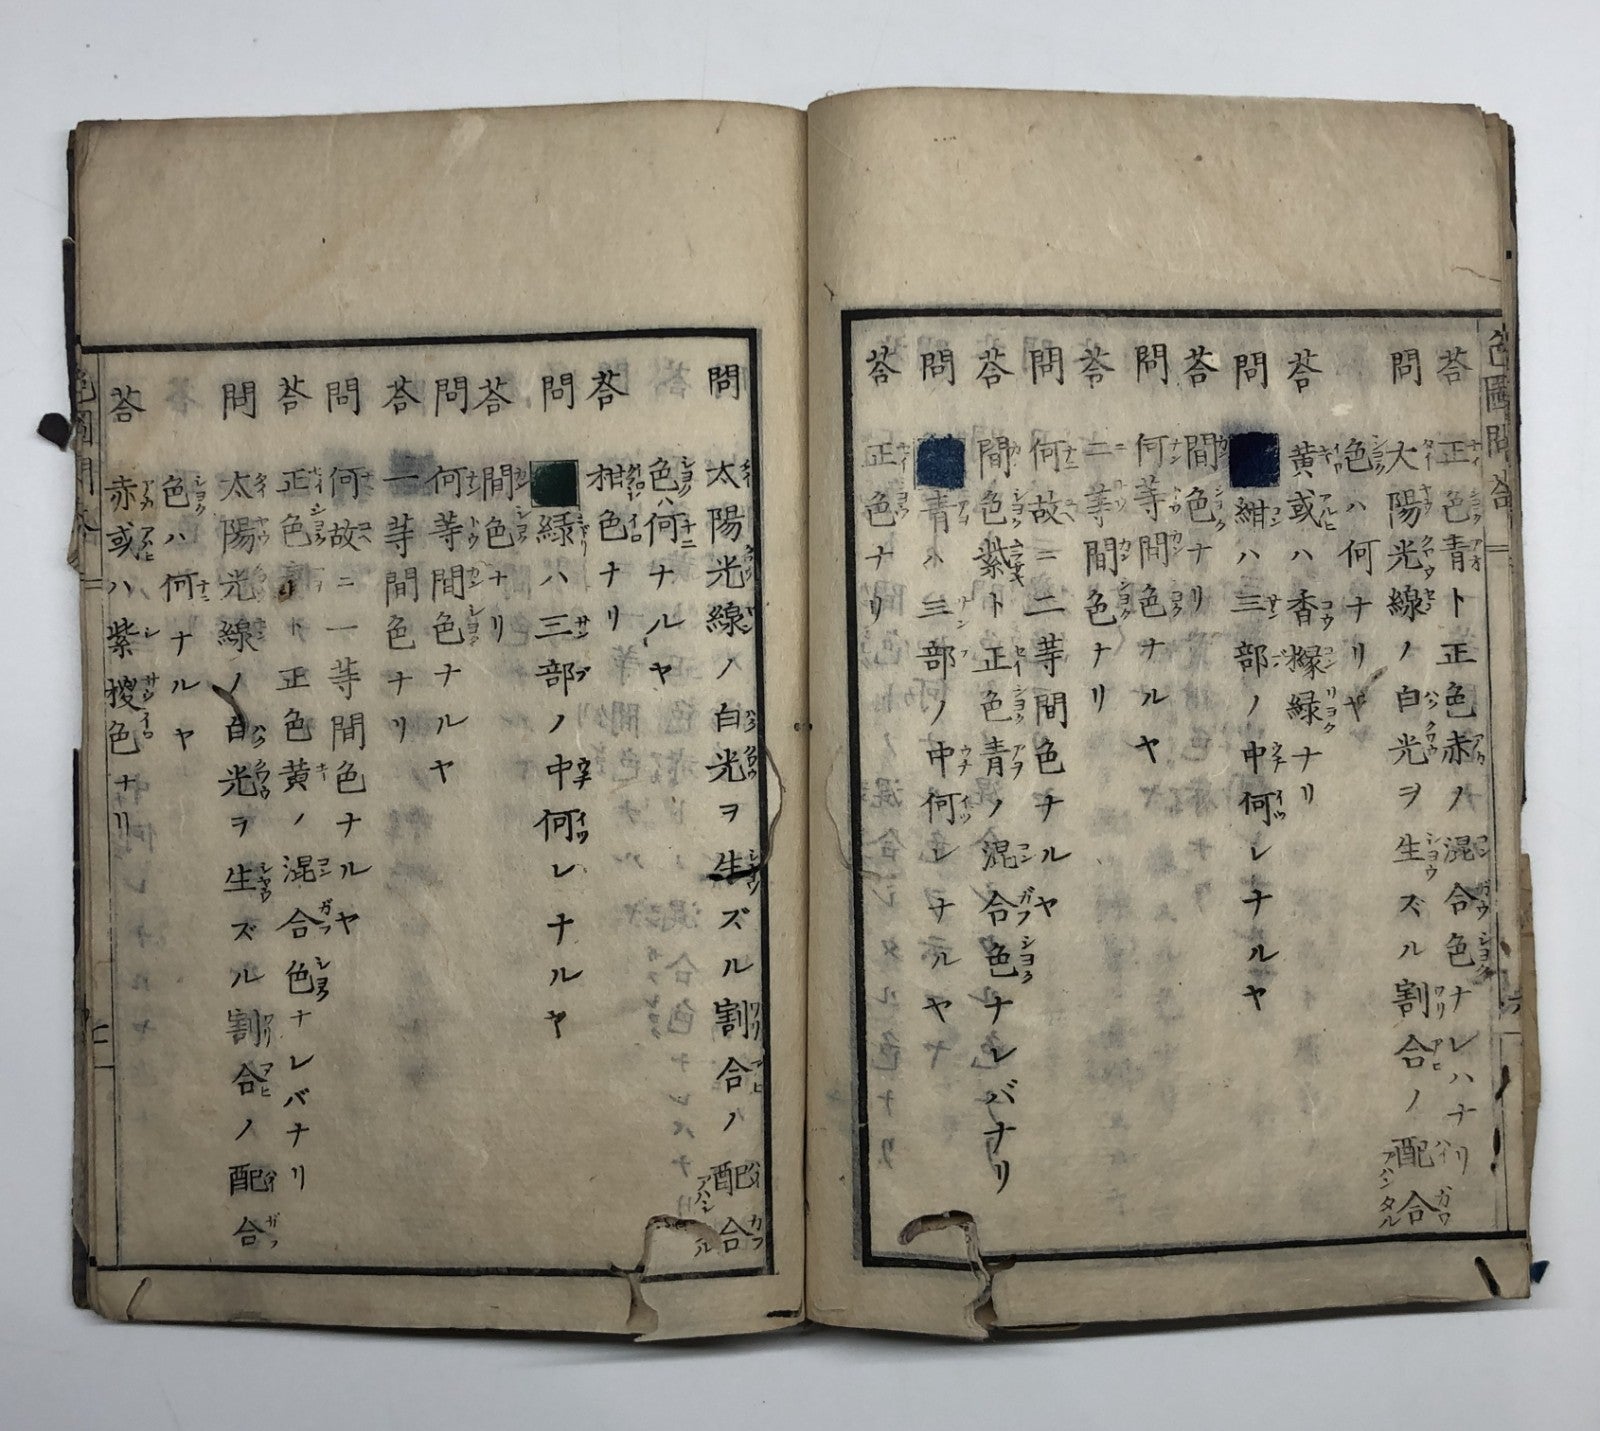 色圖問答
荅 正色青ト正色赤ノ混合色ナレハナリ
問 大陽光線ノ白光ヲ生ズル割合ノ配合
色ハ何ナリヤ
荅 黄或ハ香櫞緑ナリ
問 紺ハ三部ノ中何レナルヤ
荅 間色ナリ
問 何等間色ナルヤ
荅 二等間色ナリ
問 何故ニ二等間色ナルヤ
荅 間色紫ト正色青ノ混合色ナレバナリ
問 青ハ三部ノ中何レナルヤ
荅 正色ナリ
問 太陽光線ノ白光ヲ生ズル割合ノ配合
色ハ何ナルヤ
荅 柑色ナリ
問 緑ハ三部ノ中何レナルヤ
荅 間色ナリ
問 何等間色ナルヤ
荅 一等間色ナリ
問 何故ニ一等間色ナルヤ
荅 正色青ト正色黄ノ混合色ナレバナリ
問 太陽光線ノ白光ヲ生ズル割合ノ配合
色ハ何ナルヤ
荅 赤或ハ紫㯃色ナリ